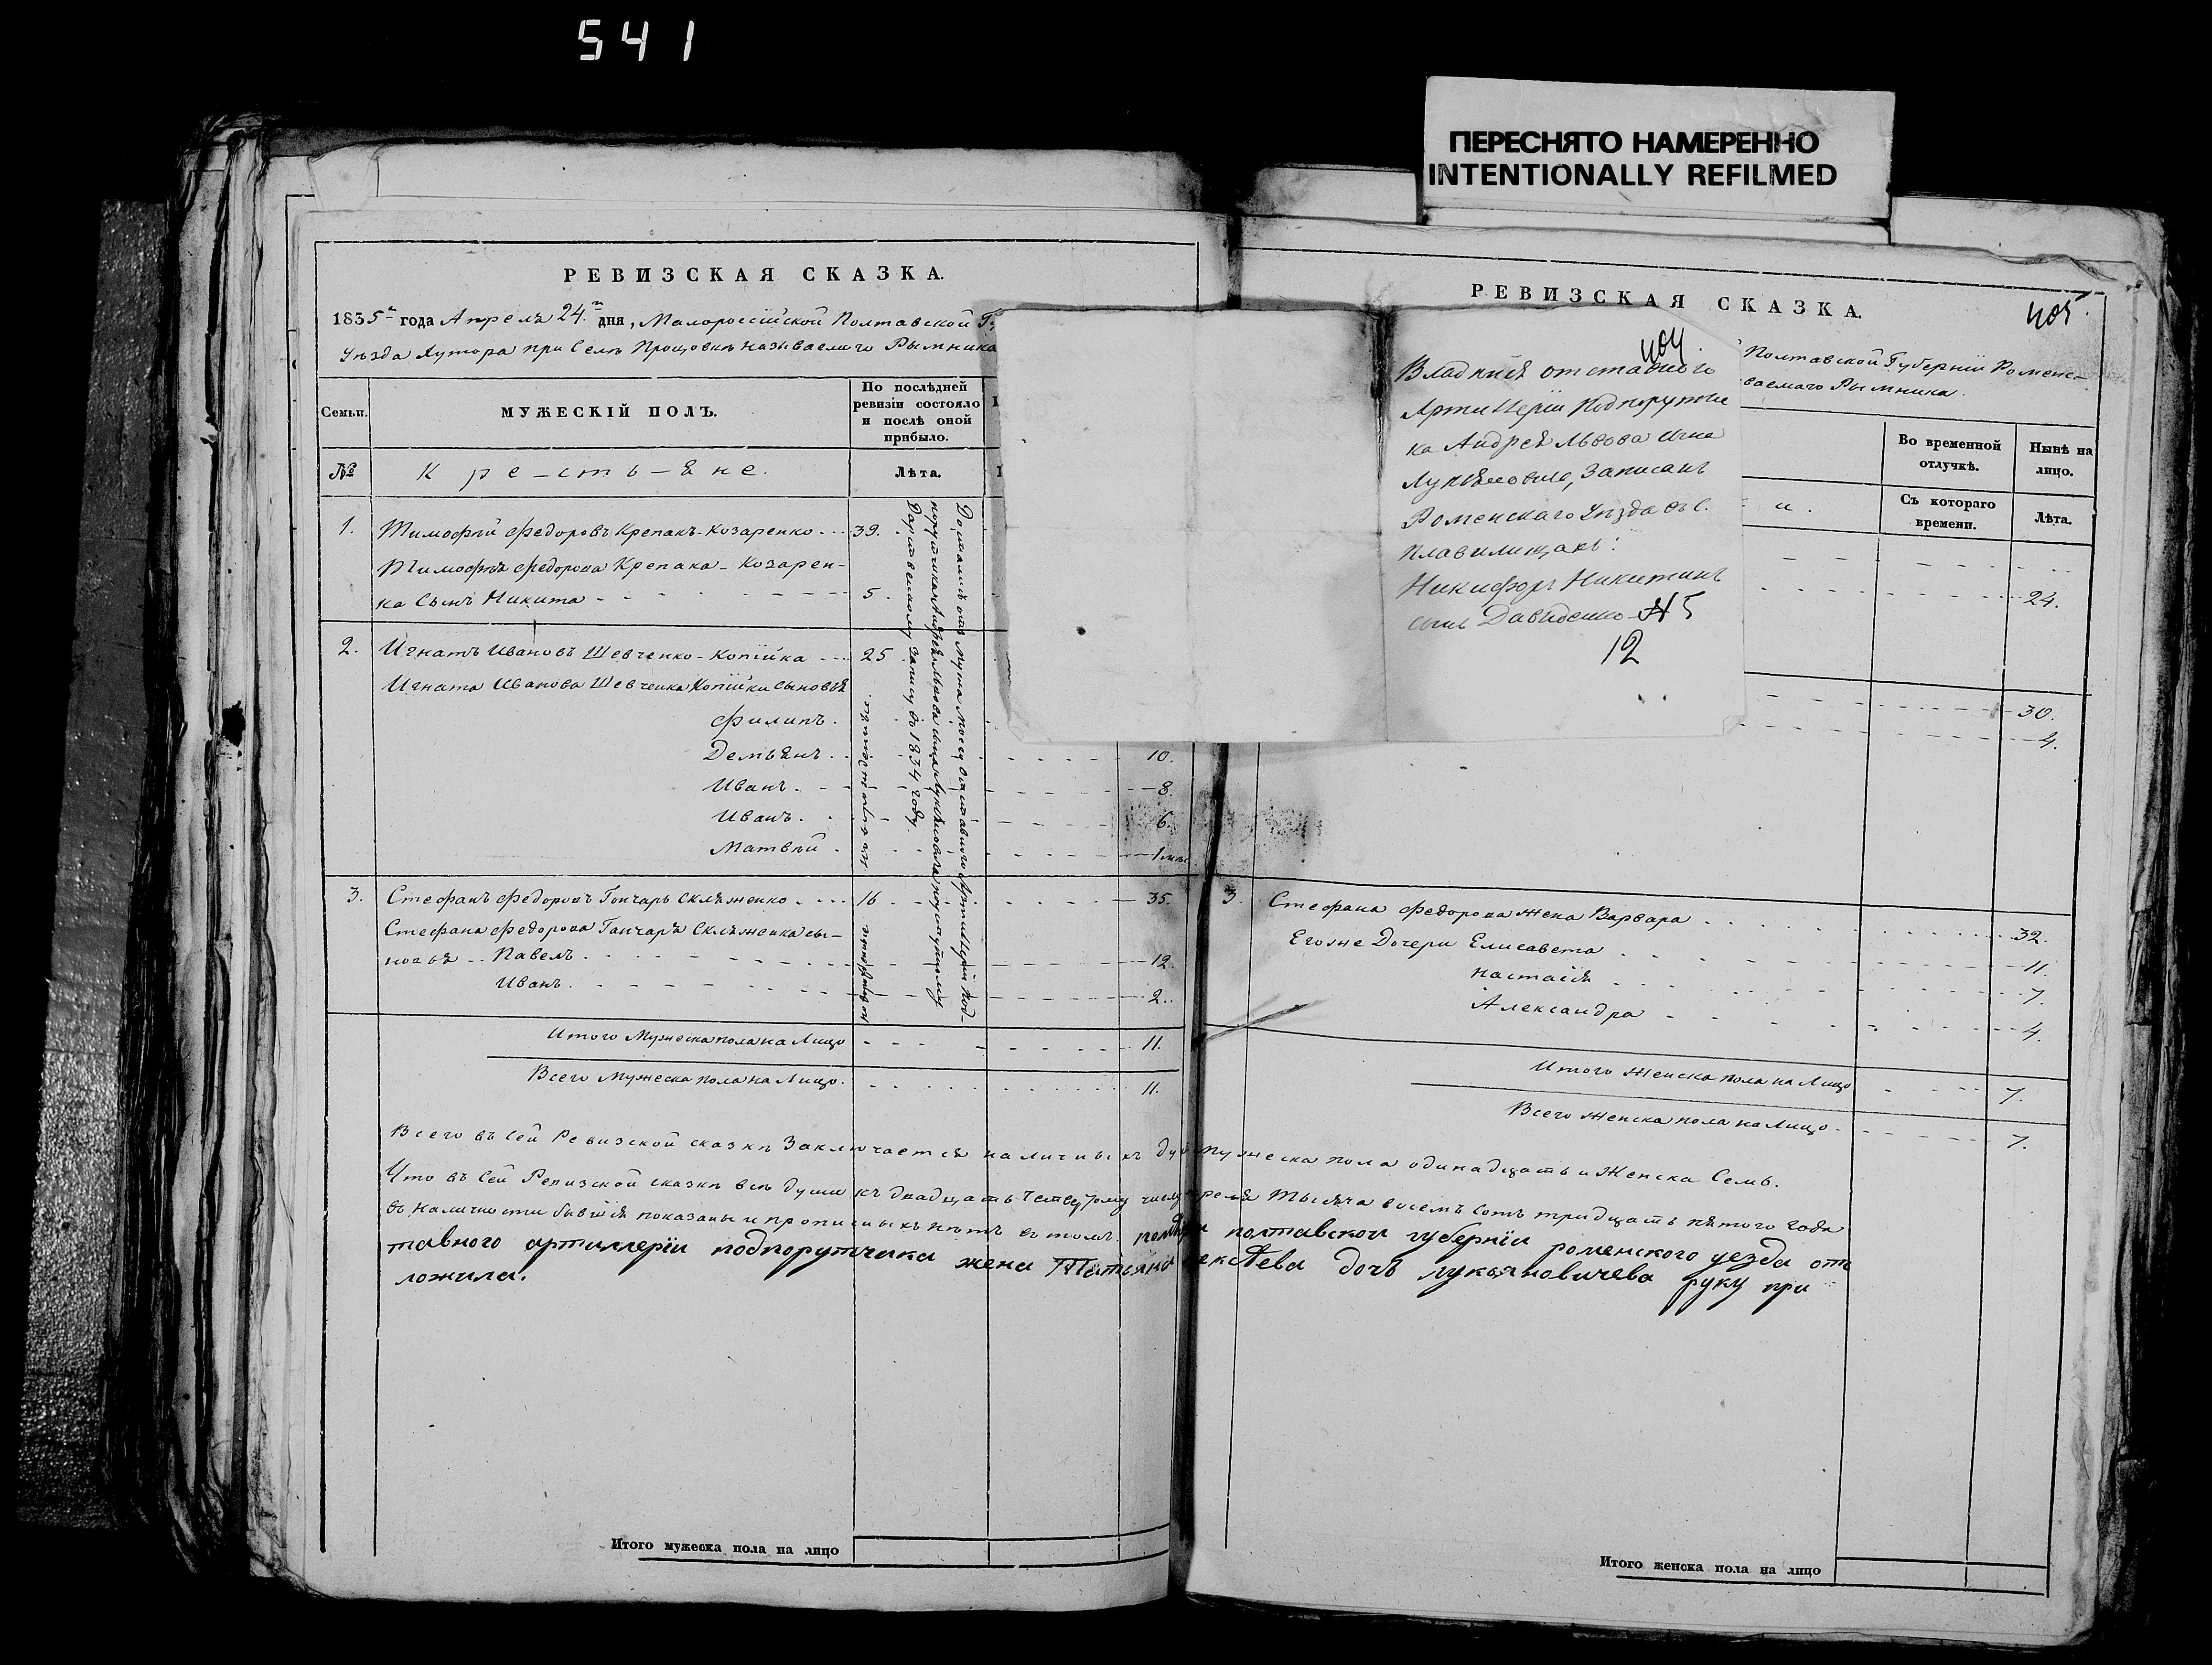 541
ПЕРЕСНЯТО НАМЕРЕННО
INTENTIONALLY REFILMED
РЕВИЗСКАЯ СКАЗКА.
1835го года Апреля 24го дня, Малороссійской Полтавской
Уѣзда Хутора при Селѣ Процовкѣ называемого Рымника
Семьи.
МУЖЕСКІЙ ПОЛЪ.
По послѣдней ревизіи состояло и послѣ оной прибыло.
№
Крестьяне.
Лѣта.
1. Тимофѣй Федоровъ Крепакъ-Козаренко 39.
Тимофѣя Федорова Крепака-Козарен-
ка Сынъ Никита 5.
2. Игнатъ Ивановъ Шевченко-Копійка 25
Игната Иванова Шевченка Копійки Сыновья
Филипъ.
Демьянъ. 10.
Иванъ. 8.
Иванъ. 6.
Матвѣй 1 мѣс
3. Стефанъ Федоровъ Гончаръ Скляженко 16 35.
Стефана Федорова Гончаря Скляженка сы-
новья Павелъ 12.
Иванъ. 2.
новорожденные
Достались отъ мужа моего отставного Артиллеріи под-
порутчика Андрея Львова сына Лукьяновича по
Дарственному запису въ 1834 году.
Итого Мужеска пола на Лицо 11.
Всего Мужеска пола на Лицо. 11.
404.
Владѣнія отставного
Артиллеріи Подпорутчи
ка Андрея Львова сына
Лукьяновича, Записанъ
Роменскаго Уѣзда въ с.
Плавилищахъ:
Никифоръ Никитинъ
сынъ Давиденко № 5
12
РЕВИЗСКАЯ СКАЗКА.
405.
Полтавской Губерніи Роменс-
ваемаго Рымника.
Во временной отлучкѣ.
Нынѣ на лицо.
Съ котораго времени.
Лѣта.
24.
30.
4.
3. Стефана Федорова жена Варвара 32.
Егоже Дочери Елисавета 11.
Настасія 7.
Александра 4.
Итого женска пола на Лицо 7.
Всего женска пола на Лицо. 7.
Всего въ сей Ревизской сказкѣ Заключается наличныхъ ду мужеска пола одинадцать и Женска Семь.
Что въ сей Ревизской сказкѣ всѣ души къ двадцать четвертому числу Апреля Тысяча восемь сотъ тридцать пятого года
въ наличности бывшія показаны и прописныхъ нѣтъ въ томъ полтавскои губерніи роменского уезда отс
тавного артиллеріи подпорутчика жена Татьяна дочь лукьяновичева руку при
ложила.
Итого мужеска пола на лицо
Итого женска пола на лицо